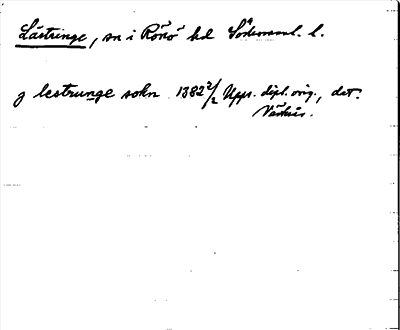 Lästringe, sn i Rönö hd Södermanl. l.
J lestrunge sokn 1382 2/2 Upps. dipl. orig., dat.